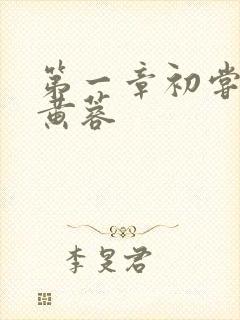 第一章初尝
黄蓉
李旻君